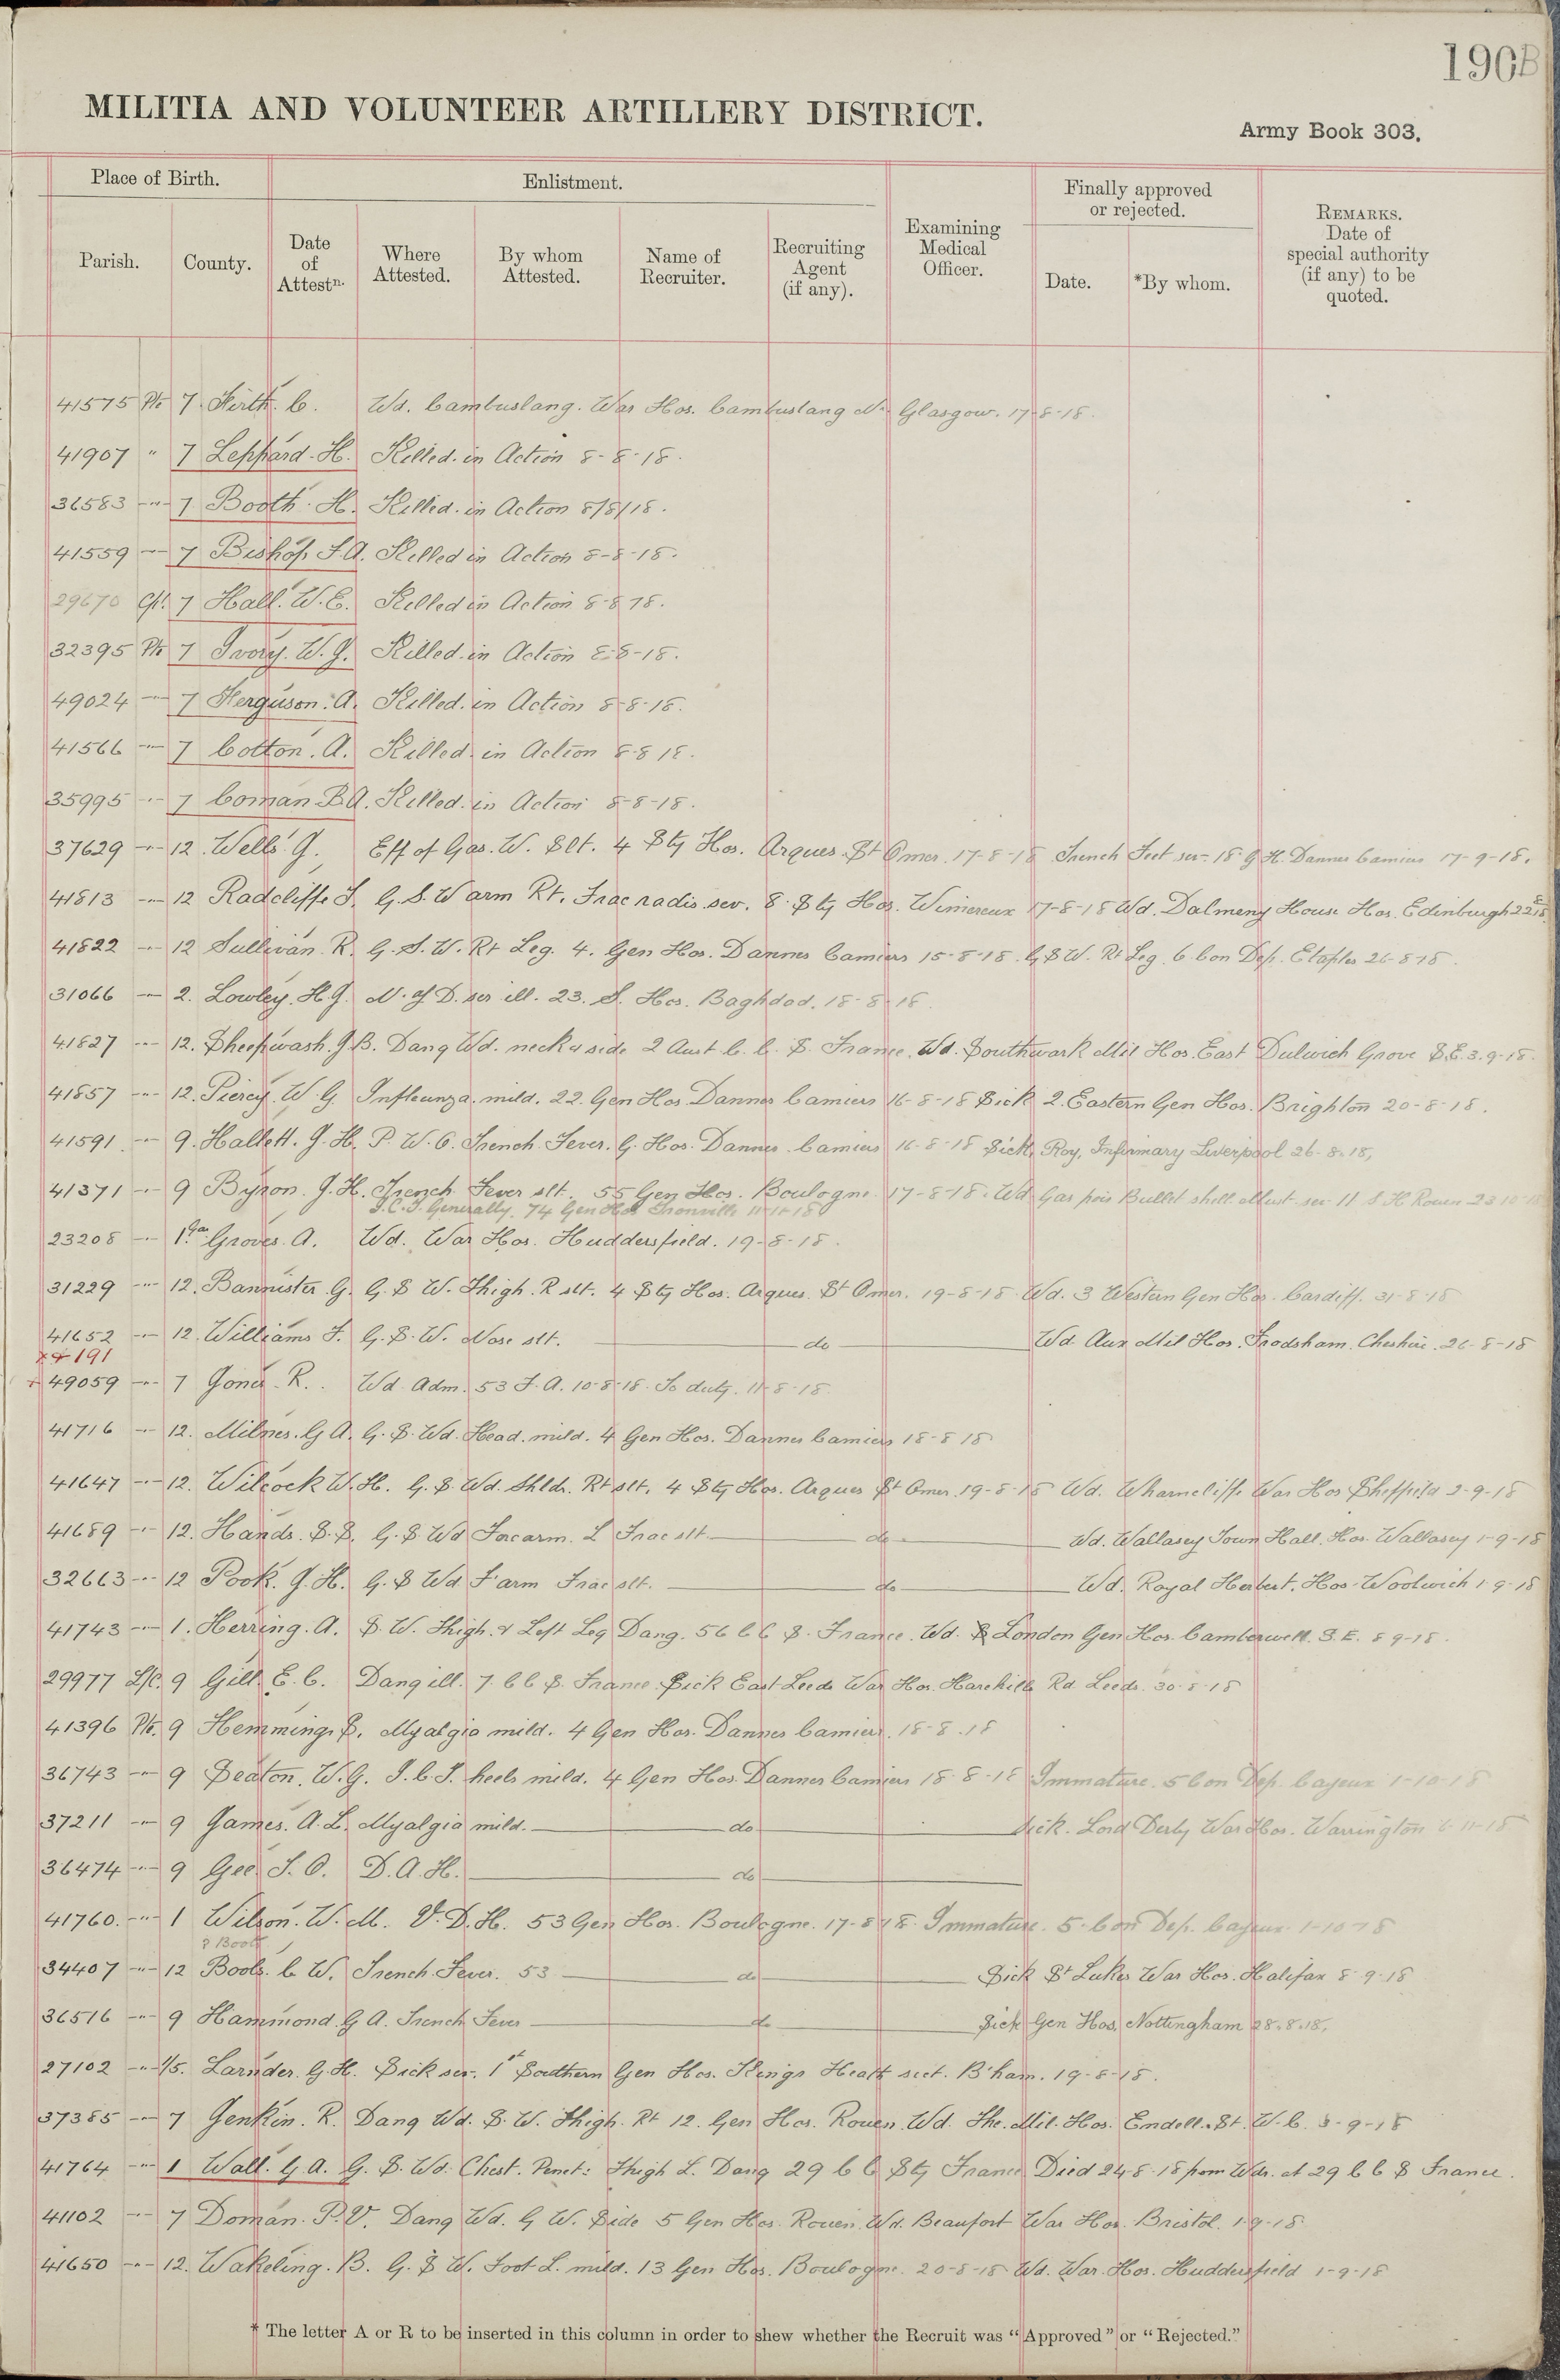 190B
MILITIA AND VOLUNTEER ARTILLERY DISTRICT.
Army Book 303.
Place of Birth. Enlistment. Examining Medical Officer. Finally approved or rejected. REMARKS. Date of special authority (if any) to be quoted.
Parish. County. Date of Attestn. Where Attested. By whom Attested. Name of Recruiter. Recruiting Agent (if any). Date. *By whom.
41575 Pte 7 Firth. C. Wd. Cambuslang. War Hos. Cambuslang Nr Glasgow. 17-8-18.
41907 " 7 Leppard. H. Killed. in Action 8-8-18.
36583 -"- 7 Booth. H. Killed. in Action 8/8/18.
41559 -"- 7 Bishop F.A. Killed in Action 8-8-18.
29670 Cpl. 7 Hall. W.E. Killed in Action 8-8-18.
32395 Pte 7 Ivory. W.J. Killed. in Action 8-8-18.
49024 -"- 7 Ferguson. A. Killed. in Action 8-8-18.
41566 -"- 7 Cotton. A. Killed. in Action 8-8-18.
35995 -"- 7 Coman B.A. Killed. in Action 8-8-18.
37629 -"- 12. Wells. J. Eff of Gas. W. Slt. 4 Sty Hos. Arques. St Omer. 17-8-18 Trench Feet sev- 18 G H. Dannes Camiers 17-9-18.
41813 -"- 12 Radcliffe J. G.S.W arm Rt. Frac radis sev. 8. Sty Hos. Wimereux 17-8-18 Wd. Dalmeny House Hos. Edinburgh
41822 -"- 12 Sullivan. R. G.S.W. Rt Leg. 4. Gen Hos. Dannes Camiers 15-8-18. G.S.W. Rt Leg. 6 Con Dep. Etaples 26-8-18.
31066 -"- 2. Lowley. H.J. N. of D. ser ill. 23. S. Hos. Baghdad. 18-8-18.
41827 -"- 12. Sheepwash. J.B. Dang Wd. neck & side 2 Aust C. C. S. France. Wd. Southwark Mil Hos. East Dulwich Grove S.E. 3-9-18.
41857 -"- 12. Piercy. W.G. Influenza. mild. 22. Gen Hos. Dannes Camiers 16-8-18 Sick 2. Eastern Gen Hos. Brighton 20-8-18.
41591. -"- 9. Hallett. J.H. P.W.O. Trench Fever. G. Hos. Dannes. Camiers 16-8-18 Sick. Roy. Infirmary Liverpool 26-8-18,
41371 -"- 9 Byron. J.H. Trench Fever slt. 55 Gen Hos. Boulogne. 17-8-18. Wd Gas pois Bullet shell sev 11 S H Rouen
I.C.T. Generally. 74 Gen Hos Tronville 11-11-18
23208 -"- 1st Gar Groves. A. Wd. War Hos. Huddersfield. 19-8-18.
31229 -"- 12. Bannister G. G.S.W. Thigh. R slt. 4 Sty Hos. Arques. St Omer. 19-8-18 Wd. 3 Western Gen Hos. Cardiff. 31-8-18
41652 -"- 12. Williams J. G.S.W. Nose slt. do Wd Aux Mil Hos. Frodsham. Cheshire. 26-8-18
191
49059 -"- 7 Jones. R. Wd Adm. 53 F.A. 10-8-18. To duty. 11-8-18.
41716 -"- 12. Milnes. G A. G.S.Wd. Head. mild. 4 Gen Hos. Dannes Camiers 18-8-18
41647 -"- 12. Wilcock W.H. G.S.Wd. Shldr. Rt slt. 4 Sty Hos. Arques St Omer. 19-8-18 Wd. Wharncliffe War Hos Sheffield 2-9-18
41689 -"- 12. Hands. S.S. G.S Wd Forearm. L Frac slt. do Wd. Wallasey Town Hall. Hos. Wallasey 1-9-18
32663 -"- 12 Pook. J.H. G.S Wd F'arm Frac slt. do Wd. Royal Herbert. Hos. Woolwich 1-9-18
41743 -"- 1. Herring. A. S.W. Thigh. & Left Leg Dang. 56 C C S. France. Wd. London Gen Hos. Camberwell. S.E. 8-9-18.
29977 L/C. 9 Gill. E.C. Dang ill. 7. C C S. France. Sick East Leeds War Hos. Harehills Rd. Leeds. 30-8-18
41396 Pte. 9 Hemming. S. Myalgia mild. 4 Gen Hos. Dannes Camiers. 18-8-18
36743 -"- 9 Seaton. W.G. I.C.T. heels mild. 4 Gen Hos. Dannes Camiers 18-8-18 Immature. 5 Con Dep. Cayeux 1-10-18
37211 -"- 9 James. A.L. Myalgia mild. do Sick. Lord Derby War Hos. Warrington 6-11-18
36474 -"- 9 Gee. J.O. D.A.H. do
41760. -"- 1 Wilson. W.M. V.D.H. 53 Gen Hos. Boulogne. 17-8-18. Immature. 5. Con Dep. Cayeux. 1-10-18
? Boot
34407 -"- 12 Bools. C W. Trench Fever. 53 do Sick St Lukes War Hos. Halifax 8-9-18
36516 -"- 9 Hammond. G A. Trench Fever do Sick Gen Hos. Nottingham 28.8.18.
27102 -"- 1/5. Larnder. G.H. Sick ser. 1st Southern Gen Hos. Kings Heath sect. B'ham. 19-8-18.
37385 -"- 7 Jenkin. R. Dang Wd. S.W. Thigh. Rt 12. Gen Hos. Rouen. Wd. The. Mil. Hos. Endell. St. W.C. 3-9-18
41764 -"- 1 Wall. G.A. G.S.Wd. Chest. Penet: Thigh L. Dang 29 C C Stg France Died 24-8-18 from Wds. at 29 C C S France.
41102 -"- 7 Doman. P.V. Dang Wd. G W. Side 5 Gen Hos. Rouen. Wd. Beaufort War Hos. Bristol. 1-9-18.
41650 -"- 12. Wakeling. B. G.S.W. Foot L. mild. 13 Gen Hos. Boulogne. 20-8-18 Wd. War. Hos. Huddersfield 1-9-18
* The letter A or R to be inserted in this column in order to shew whether the Recruit was "Approved" or "Rejected."